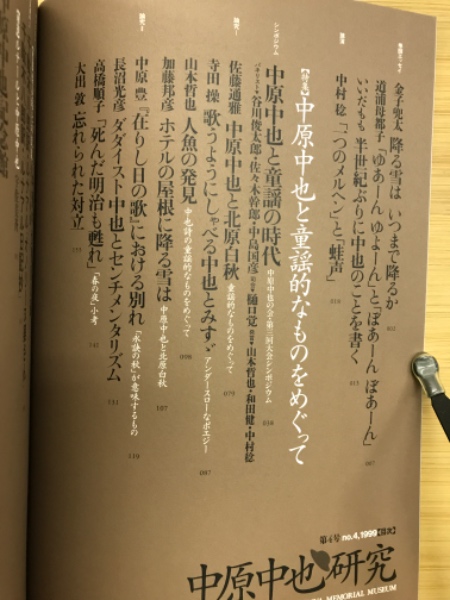 金子兜太 降る雪は いつまで降るか 002
道浦母都子 「ゆあーん ゆよーん」と「ぼあーん ぼあーん」 007
いいだもも 半世紀ぶりに中也のことを書く 013
講演
中村稔 「一つのメルヘン」と「蛙声」 020
【特集】中原中也と童謡的なものをめぐって
シンポジウム
中原中也と童謡の時代 中原中也の会・第三回大会シンポジウム 038
パネリスト=谷川俊太郎・佐々木幹郎・中島国彦 司会=樋口覚 山本哲也・和田健・中村稔
論究Ⅰ
佐藤通雅 中原中也と北原白秋 童謡的なものをめぐって 075
寺田操 歌うようにしゃべる中也とみすゞ アンダースローなポエジー 087
山本哲也 人魚の発見 中也詩の童謡的なものをめぐって 098
加藤邦彦 ホテルの屋根に降る雪は 中原中也と北原白秋 107
論究Ⅱ
中原豊 『在りし日の歌』における別れ 「永訣の秋」が意味するもの 119
長沼光彦 ダダイスト中也とセンチメンタリズム 131
高橋順子 「死んだ明治も甦れ」 「春の夜」小考 141
大出敦 忘れられた対立 155
第4号 no.4,1999【目次】
中原中也研究
MEMORIAL MUSEUM